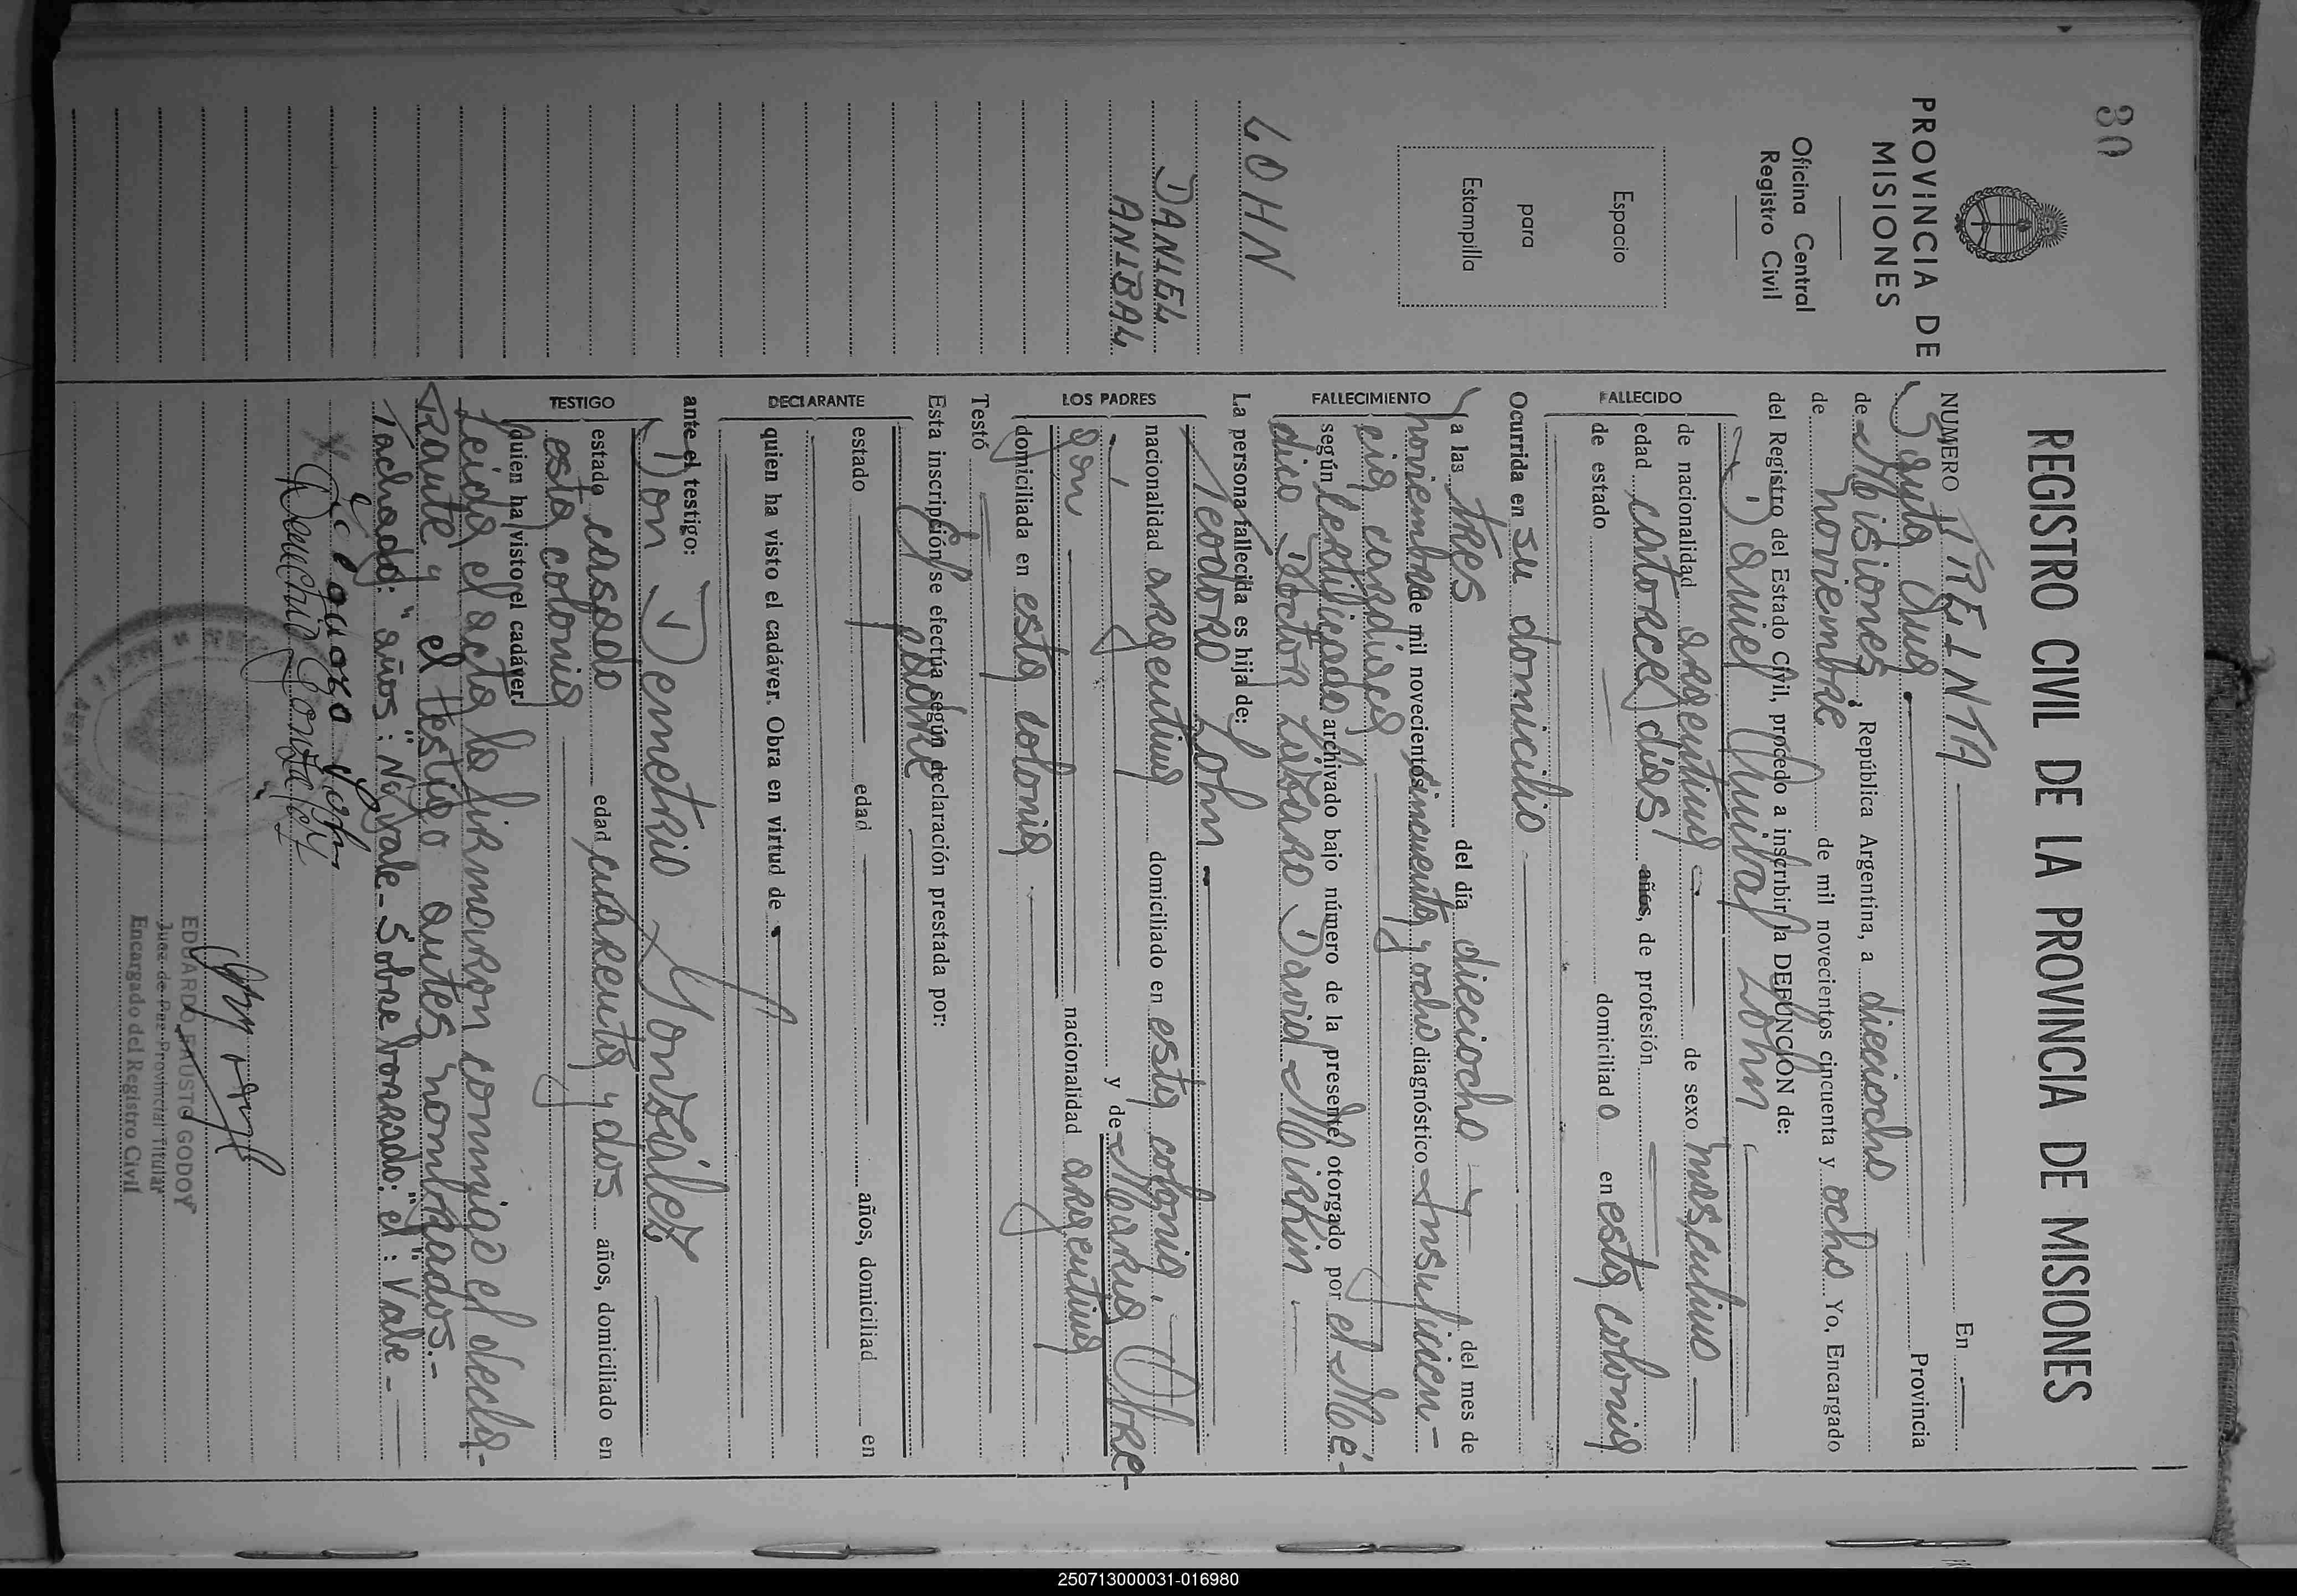 30
PROVINCIA DE
MISIONES
Oficina Central
Registro Civil
Espacio
para
Estampilla
LOHN
DANIEL
ANIBAL
REGISTRO CIVIL DE LA PROVINCIA DE MISIONES
NUMERO TREINTA En
Santa Ana Provincia
de Misiones, República Argentina, a dieciocho
de noviembre de mil novecientos cincuenta y ocho Yo, Encargado
del Registro del Estado Civil, procedo a inscribir la DEFUNCION de:
Daniel Anibal Lohn
FALLECIDO
de nacionalidad argentina de sexo masculino
edad catorce días años, de profesión
de estado domiciliado en esta colonia
Ocurrida en su domicilio
FALLECIMIENTO
a las tres del día dieciocho del mes de
noviembre de mil novecientos cincuenta y ocho diagnóstico Insuficien-
cia cardiaca
según certificado archivado bajo número de la presente otorgado por el Mé-
dico Doctor Lázaro David Mirkin.
La persona fallecida es hija de:
Teodoro Lohn
LOS PADRES
nacionalidad argentina domiciliado en esta colonia,
y de María Obre-
gon nacionalidad argentina
domiciliada en esta colonia
Testó
Esta inscripción se efectúa según declaración prestada por:
El padre
DECLARANTE
estado edad años, domiciliad en
quien ha visto el cadáver. Obra en virtud de
ante el testigo:
Don Demetrio González
TESTIGO
estado casado edad cuarenta y dos años, domiciliado en
esta colonia
quien ha visto el cadáver.
Leida el acta la firmaron conmigo el decla-
rante y el testigo antes nombrados.-
Tachado: "años": No vale- Sobre borrado: "el": Vale-
EDUARDO FAUSTO GODOY
Juez de Paz Provincial Titular
Encargado del Registro Civil
250713000031-016980